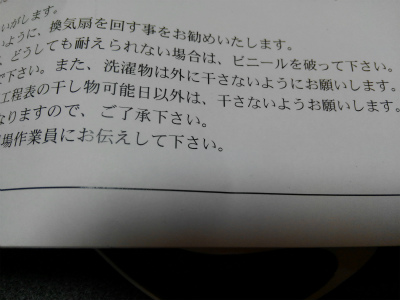 いがします。
ように、換気扇を回す事をお勧めいたします。
、どうしても耐えられない場合は、ビニールを破って下さい。
で下さい。また、洗濯物は外に干さないようにお願いします。
工程表の干し物可能日以外は、干さないようお願いします。
なりますので、ご了承下さい。
場作業員にお伝えして下さい。